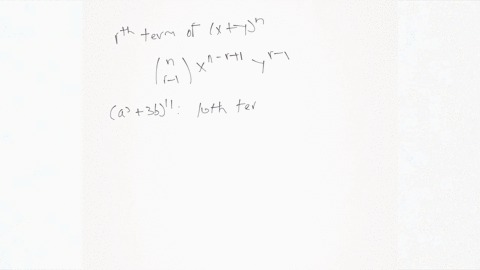 rth term of (x+y)^n
(n r-1) x^{n-r+1} y^{r-1}
(a³+3b)^{11}: 10th ter